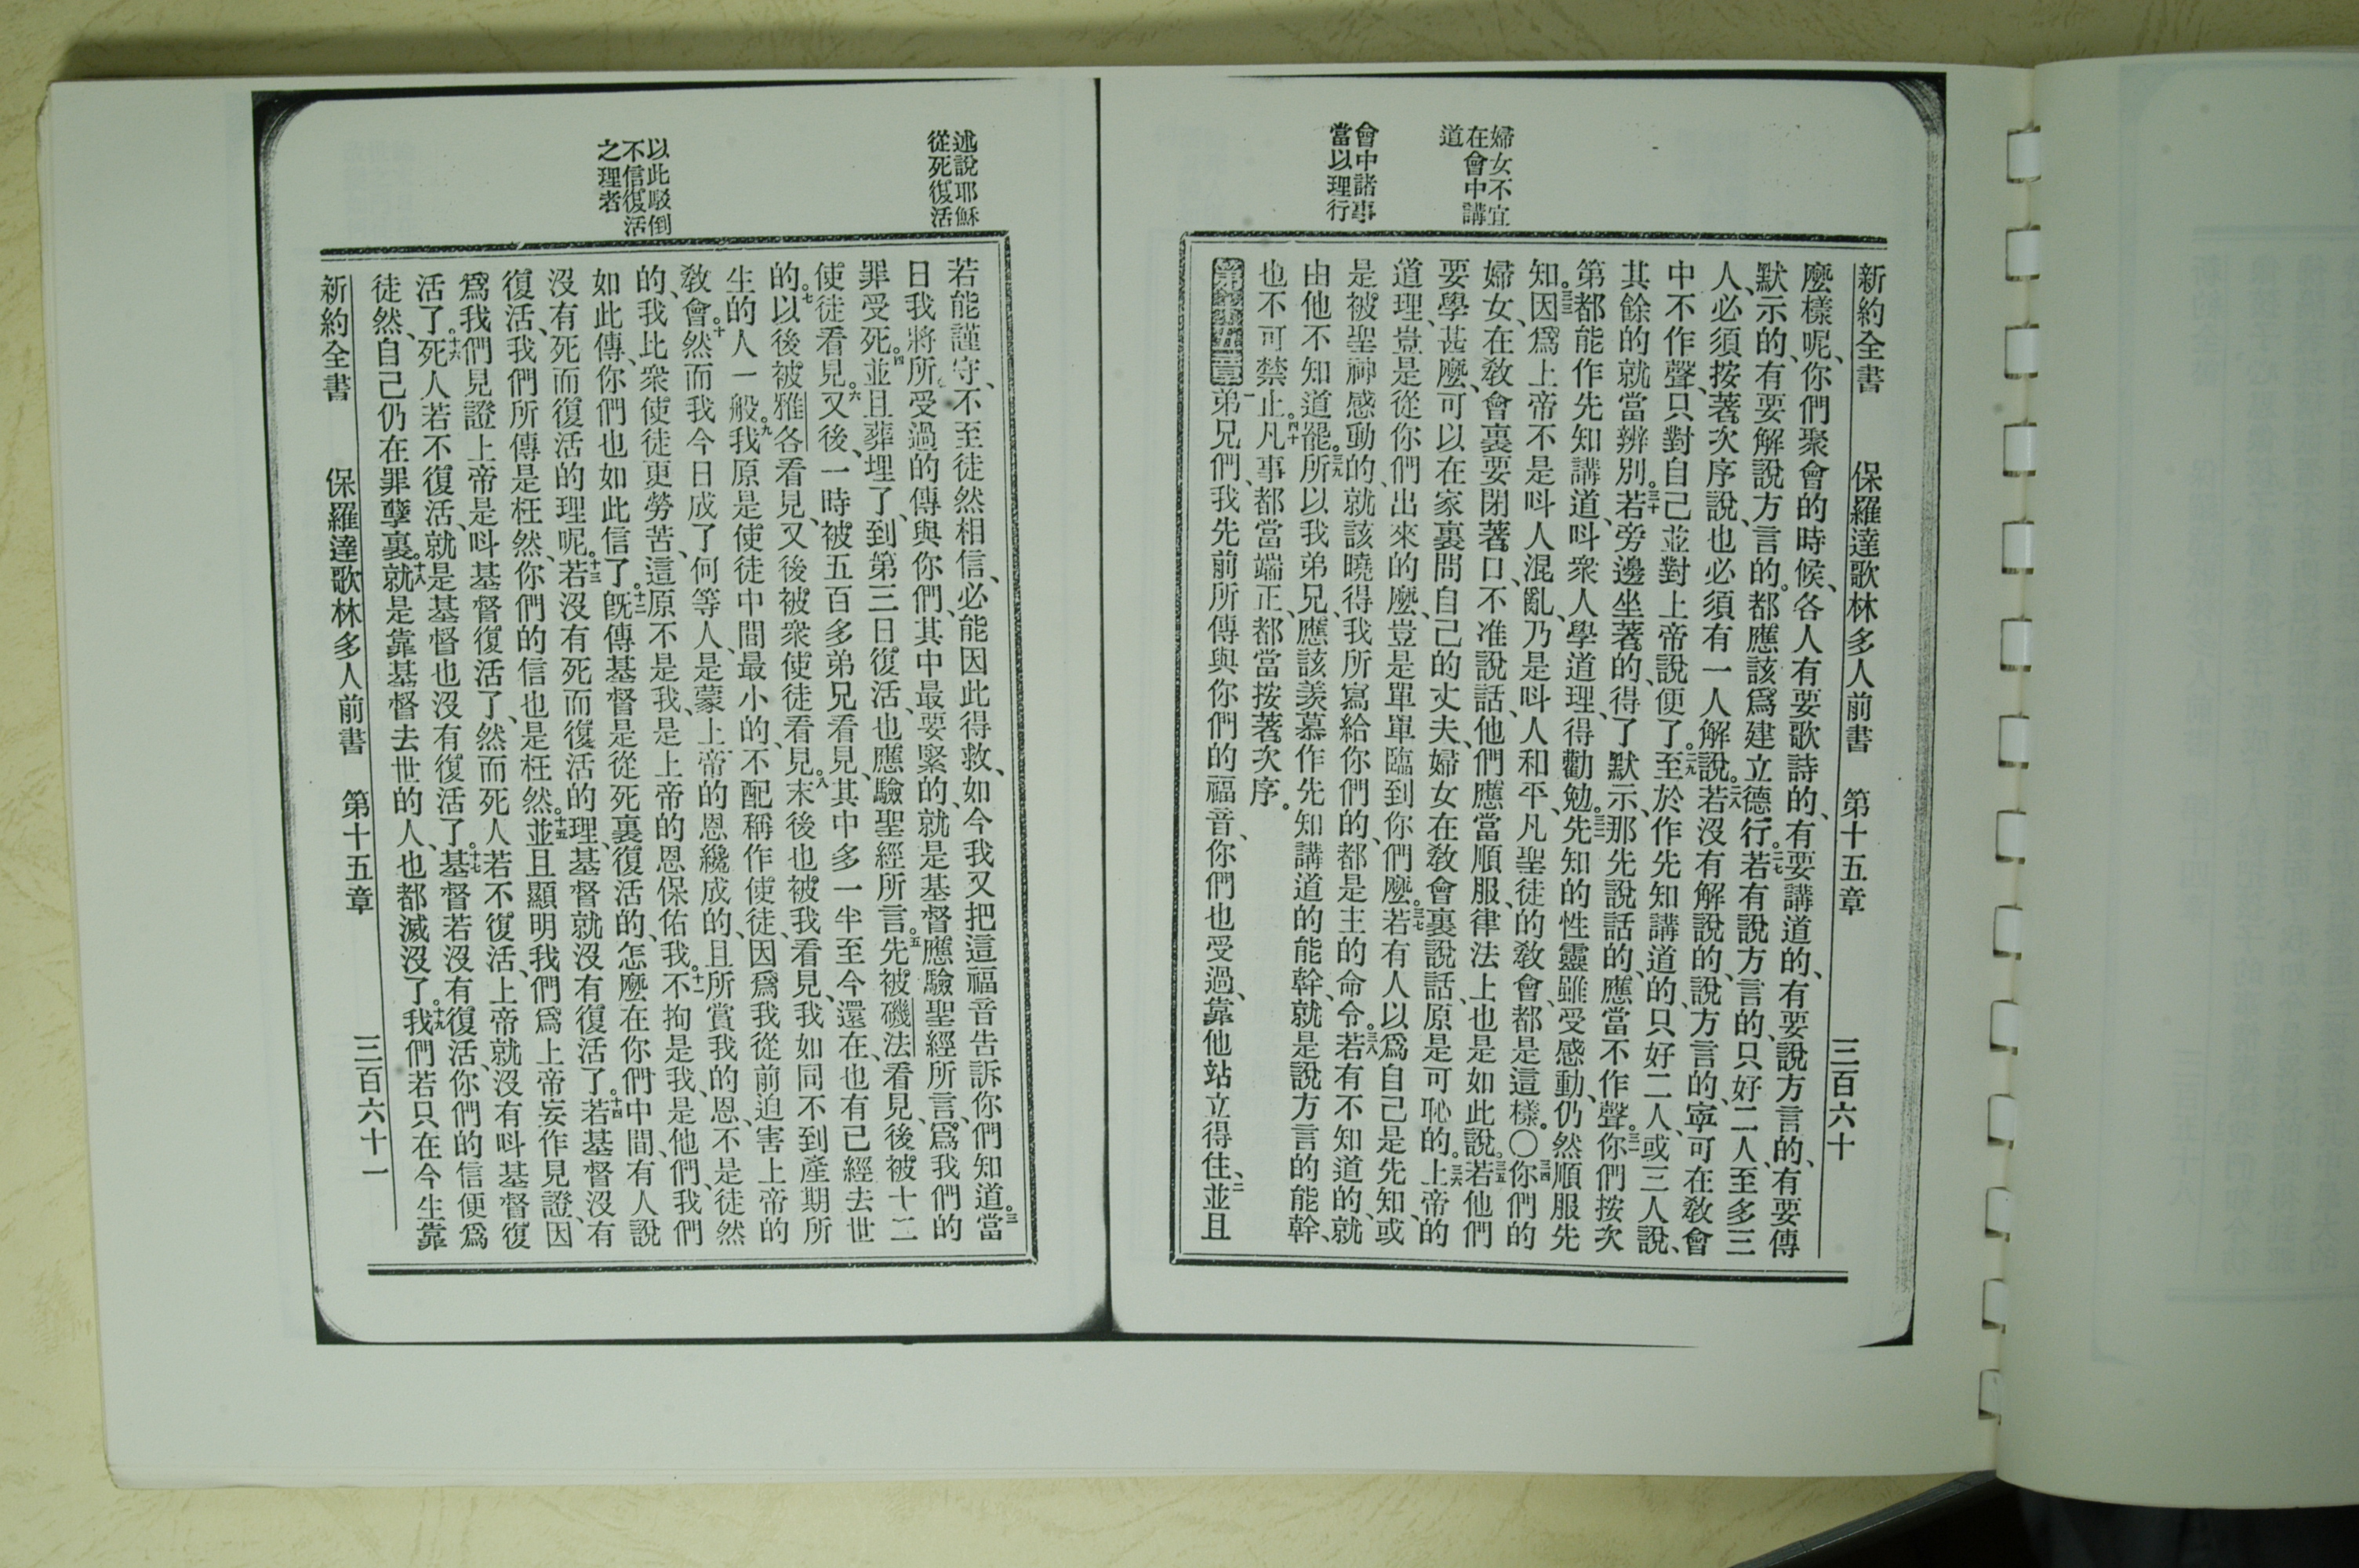 新約全書　保羅達歌林多人前書　第十五章　三百六十
婦女不宜
在會中講
道
會中諸事
當以理行
麼樣呢、你們聚會的時候、各人有要歌詩的、有要講道的、有要說方言的、有要傳
默示的、有要解說方言的。都應該爲建立德行。二七若有說方言的、只好二人、至多三
人、必須按著次序說、也必須有一人解說。二八若沒有解說的、說方言的、寧可在教會
中不作聲、只對自己並對上帝說便了。二九至於作先知講道的、只好二人、或三人說、
其餘的就當辨別。三十若旁邊坐著的、得了默示、那先說話的、應當不作聲。三一你們按次
第都能作先知講道、呌衆人學道理、得勸勉。三二先知的性靈雖受感動、仍然順服先
知。三三因爲上帝不是呌人混亂、乃是呌人和平、凡聖徒的教會、都是這樣。〇三四你們的
婦女、在教會裏要閉著口、不准說話、他們應當順服、律法上也是如此說。三五若他們
要學甚麼、可以在家裏問自己的丈夫、婦女在教會裏說話、原是可恥的。三六上帝的
道理、豈是從你們出來的麼、豈是單單臨到你們麼。三七若有人以爲自己是先知、或
是被聖神感動的、就該曉得、我所寫給你們的、都是主的命令。三八若有不知道的、就
由他不知道罷。三九所以我弟兄、應該羨慕作先知講道的能幹、就是說方言的能幹、
也不可禁止。四十凡事都當端正、都當按著次序。
第十五章一弟兄們、我先前所傳與你們的福音、你們也受過、靠他站立得住、二並且
述說耶穌
從死復活
以此駁倒
不信復活
之理者
若能謹守、不至徒然相信、必能因此得救、如今我又把這福音告訴你們知道。三當
日我將所受過的傳與你們、其中最要緊的、就是基督應驗聖經所言、爲我們的
罪受死。四並且葬埋了、到第三日復活、也應驗聖經所言。五先被磯法看見、後被十二
使徒看見。六又後、一時被五百多弟兄看見、其中多一半至今還在、也有已經去世
的。七以後被雅各看見、又後被衆使徒看見。八末後也被我看見、我如同不到產期所
生的人一般。九我原是使徒中間最小的、不配稱作使徒、因爲我從前迫害上帝的
教會。十然而我今日成了何等人、是蒙上帝的恩纔成的、且所賞我的恩、不是徒然
的、我比衆使徒更勞苦、這原不是我、是上帝的恩保佑我。十一不拘是我、是他們、我們
如此傳、你們也如此信了。十二旣傳基督是從死裏復活的、怎麼在你們中間、有人說
沒有死而復活的理呢。十三若沒有死而復活的理、基督就沒有復活了。十四若基督沒有
復活、我們所傳是枉然、你們的信也是枉然。十五並且顯明我們爲上帝妄作見證、因
爲我們見證上帝是呌基督復活了、然而死人若不復活、上帝就沒有呌基督復
活了。十六死人若不復活、就是基督也沒有復活了。十七基督若沒有復活、你們的信便爲
徒然、自己仍在罪孽裏。十八就是靠基督去世的人、也都滅沒了。十九我們若只在今生靠
新約全書　保羅達歌林多人前書　第十五章　三百六十一